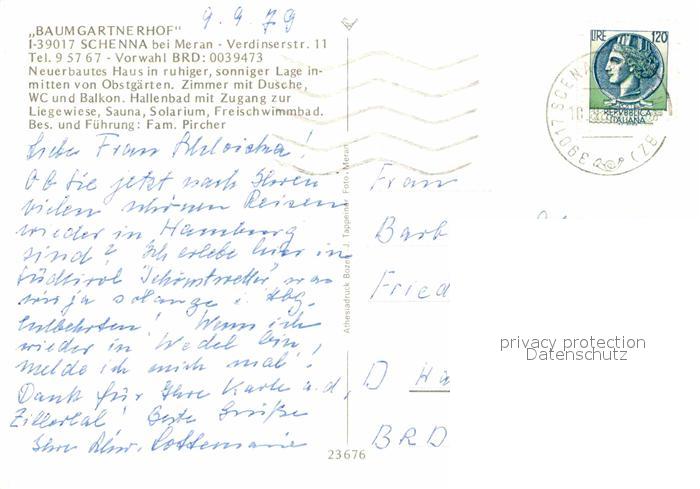 9.9.79
„BAUMGARTNERHOF"
I-39017 SCHENNA bei Meran - Verdinserstr. 11
Tel. 9 57 67 - Vorwahl BRD: 0039473
Neuerbautes Haus in ruhiger, sonniger Lage in-
mitten von Obstgärten. Zimmer mit Dusche,
WC und Balkon. Hallenbad mit Zugang zur
Liegewiese, Sauna, Solarium, Freischwimmbad.
Bes. und Führung: Fam. Pircher
Liebe Frau
Ob Sie jetzt nach Ihren
vielen schönen Reisen
wieder in Hamburg
sind? Ich erlebe hier in
Südtirol "Schönstwetter", was
wir ja solange i. Hbg.
entbehrten! Wenn ich
wieder in Wedel bin,
melde ich mich mal!
Dank für Ihre Karte a.d.
Zillertal! Beste Grüße
Ihre Lottemarie
Athesiadruck Bozen J. Tappeiner Foto - Meran
23676
LIRE 120
REPVBBLICA
ITALIANA
39017 SCENA (BZ)
Frau
Barb
Fried
D
BRD
privacy protection
Datenschutz